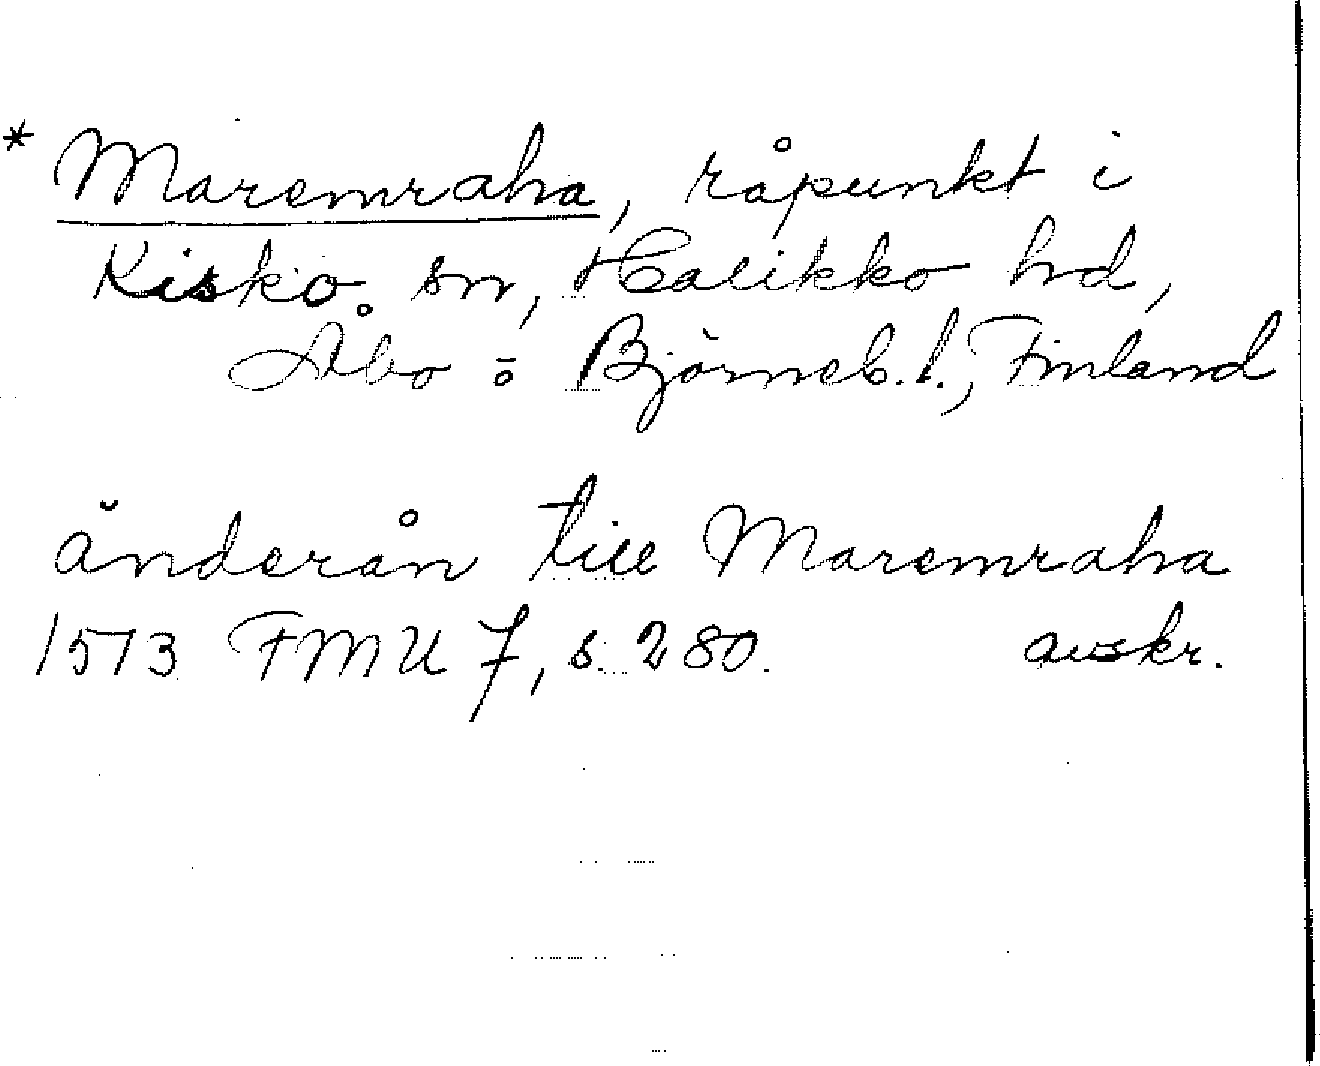 * Maremraha, råpunkt i
Kisko sn, Halikko hd,
Åbo o Björneb. l., Finland
änderån till Maremraha
1513 FMU 7, s. 280. avskr.